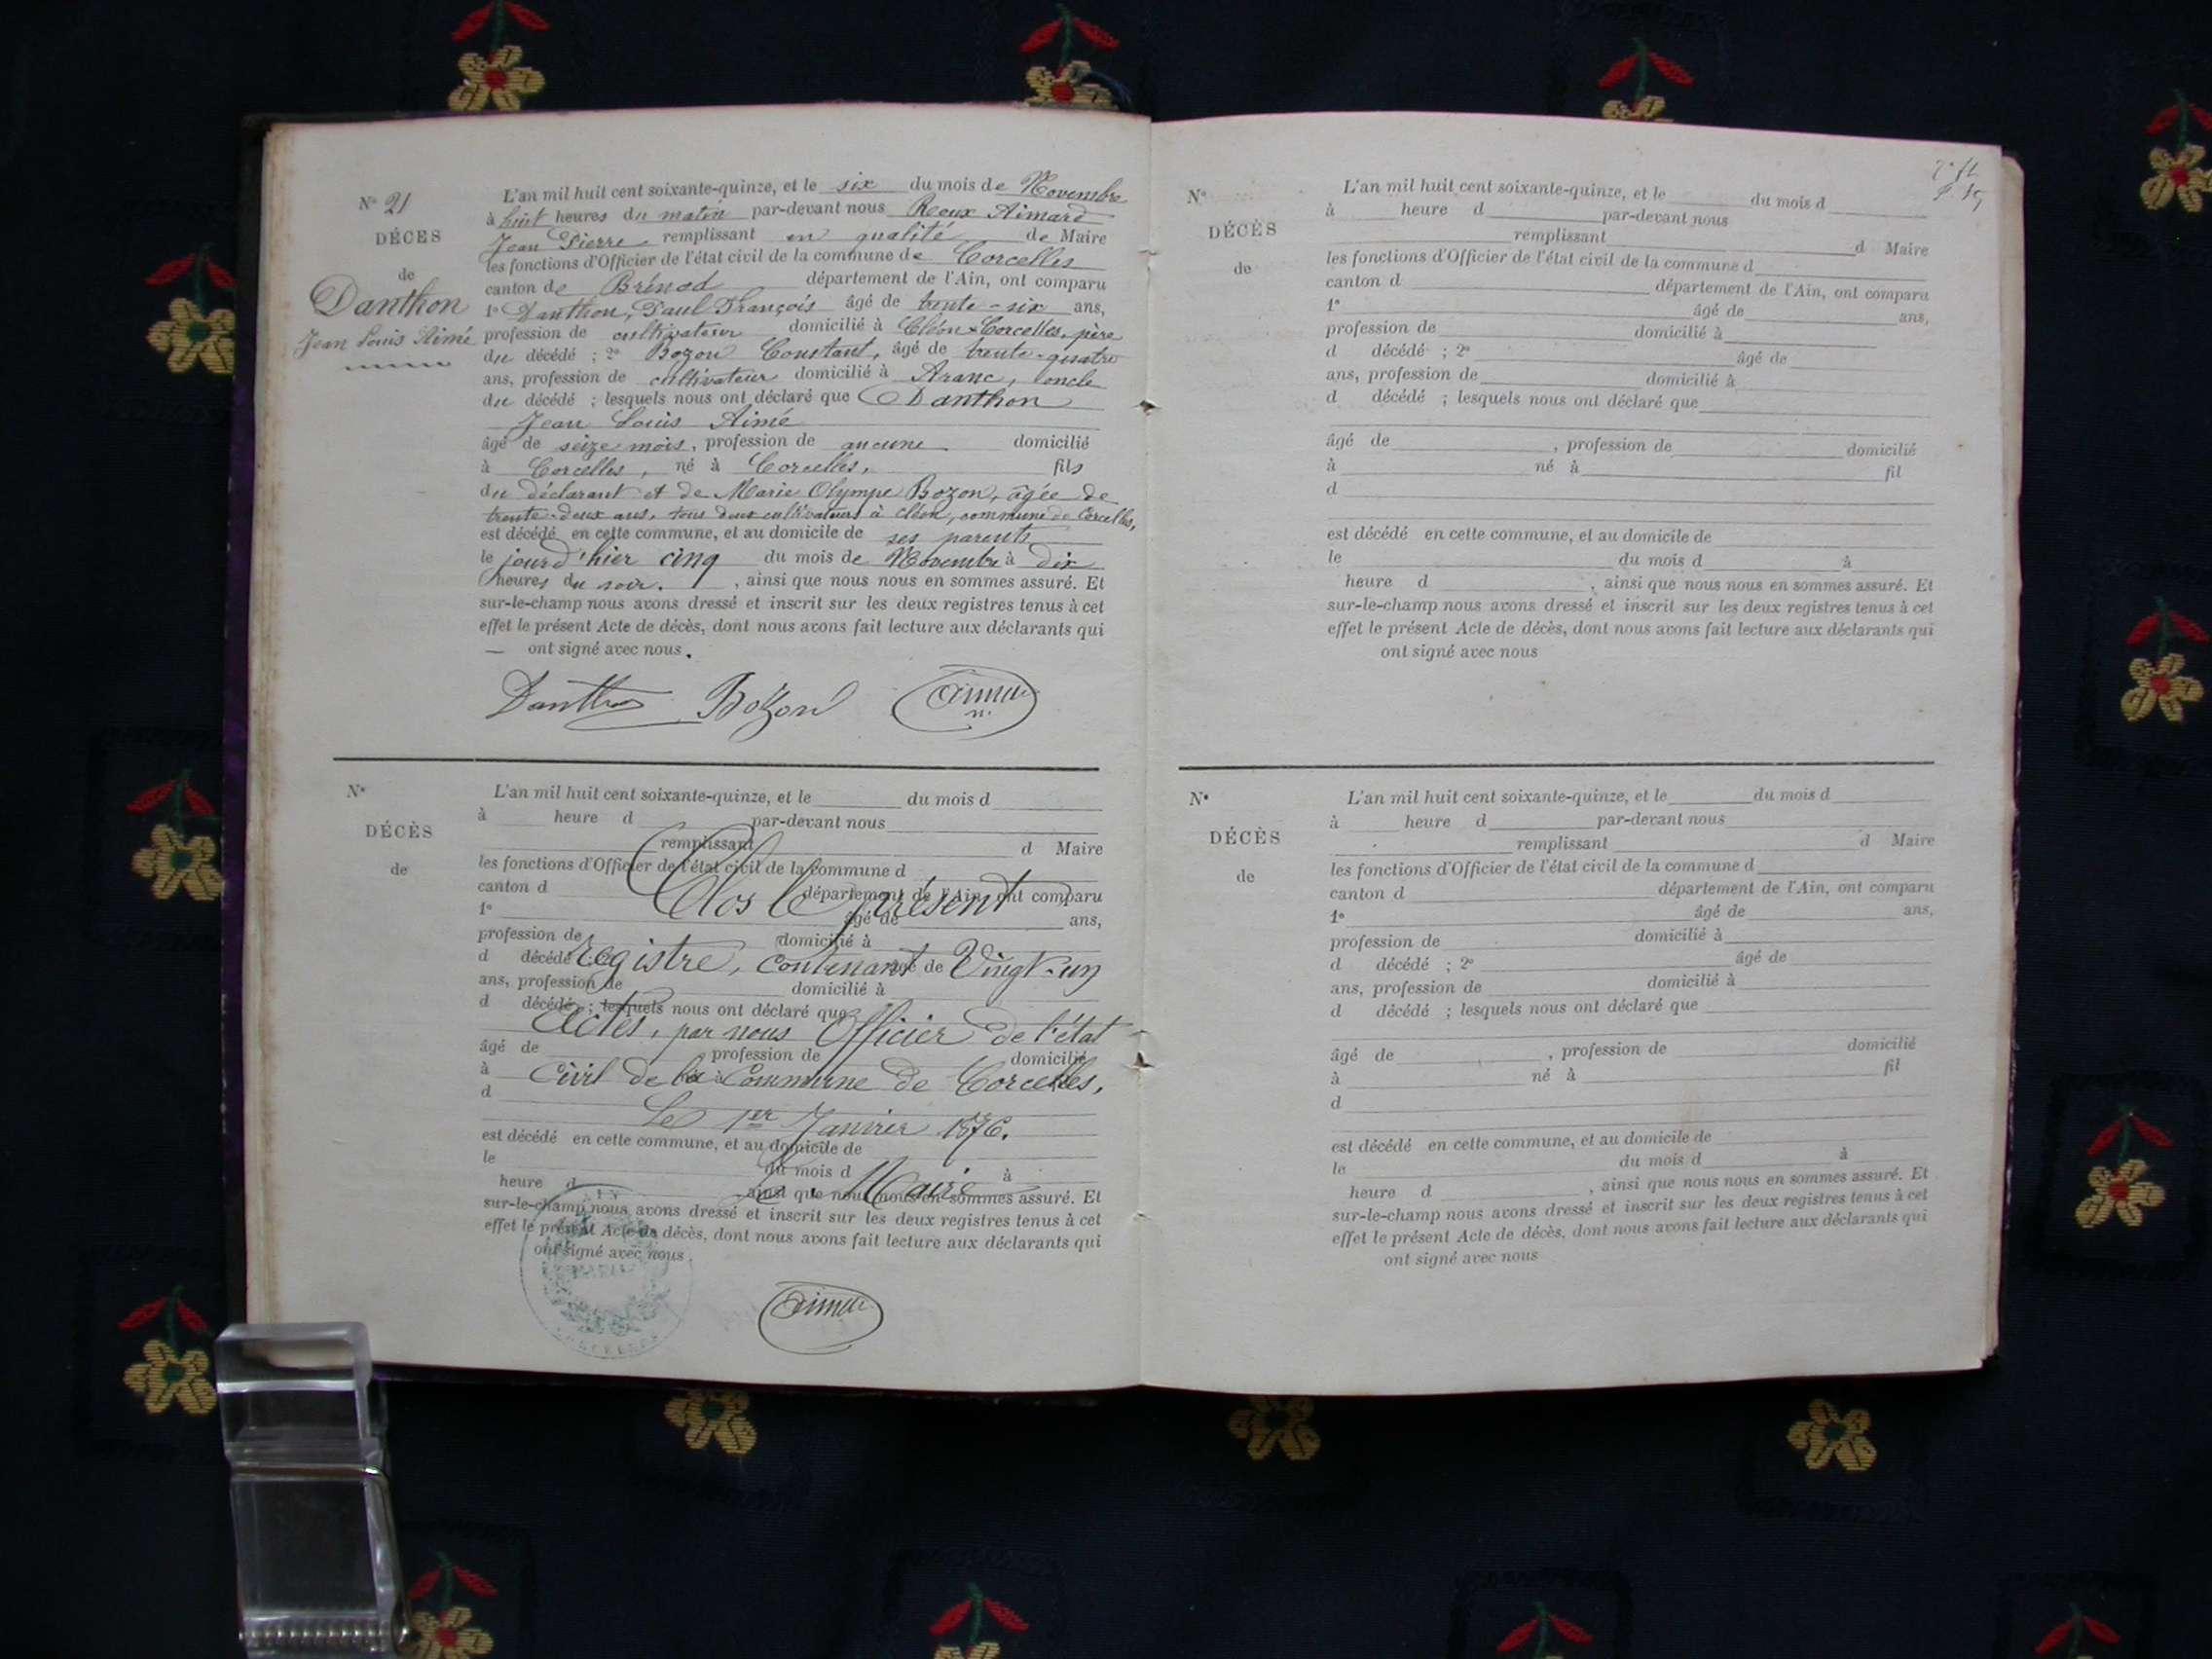 N° 21
DÉCÈS
de
Danthon
Jean Louis Aimé
L'an mil huit cent soixante-quinze, et le six du mois de Novembre
à huit heures du matin par-devant nous Roux Aimard
Jean Pierre remplissant en qualité de Maire
les fonctions d'Officier de l'état civil de la commune de Corcelles
canton de Brénod département de l'Ain, ont comparu
1° Danthon, Paul François âgé de trente-six ans,
profession de cultivateur domicilié à Cléon-Corcelles, père
du décédé ; 2° Bozon Constant, âgé de trente-quatre
ans, profession de cultivateur domicilié à Aranc, oncle
du décédé ; lesquels nous ont déclaré que Danthon
Jean Louis Aimé
âgé de seize mois, profession de aucune domicilié
à Corcelles, né à Corcelles, fils
du déclarant et de Marie Olympe Bozon, âgée de
trente-deux ans, tous deux cultivateurs à Cléon, commune de Corcelles,
est décédé en cette commune, et au domicile de ses parents
le jourd'hier cinq du mois de Novembre à dix
heures du soir. , ainsi que nous nous en sommes assuré. Et
sur-le-champ nous avons dressé et inscrit sur les deux registres tenus à cet
effet le présent Acte de décès, dont nous avons fait lecture aux déclarants qui
— ont signé avec nous.
Danthon Bozon
N°
DÉCÈS
de
L'an mil huit cent soixante-quinze, et le du mois d
à heure d par-devant nous
remplissant d Maire
les fonctions d'Officier de l'état civil de la commune d
canton d département de l'Ain, ont comparu
Clos le présent
1° âgé de ans,
profession de domicilié à
d décédé âgé de
registre, contenant Vingt-un
ans, profession de domicilié à
d décédé ; lesquels nous ont déclaré que
Actes, par nous Officier de l'état
âgé de profession de domicilié
à
Civil de la Commune de Corcelles,
d
Le 1er Janvier 1876.
est décédé en cette commune, et au domicile de
le du mois d à
Le Maire
heure d ainsi que nous nous en sommes assuré. Et
sur-le-champ nous avons dressé et inscrit sur les deux registres tenus à cet
effet le présent Acte de décès, dont nous avons fait lecture aux déclarants qui
ont signé avec nous.
N°
DÉCÈS
de
L'an mil huit cent soixante-quinze, et le du mois d
à heure d par-devant nous
remplissant d Maire
les fonctions d'Officier de l'état civil de la commune d
canton d département de l'Ain, ont comparu
1° âgé de ans,
profession de domicilié à
d décédé ; 2° âgé de
ans, profession de domicilié à
d décédé ; lesquels nous ont déclaré que
âgé de , profession de domicilié
à né à fil
d
est décédé en cette commune, et au domicile de
le du mois d à
heure d , ainsi que nous nous en sommes assuré. Et
sur-le-champ nous avons dressé et inscrit sur les deux registres tenus à cet
effet le présent Acte de décès, dont nous avons fait lecture aux déclarants qui
ont signé avec nous
N°
DÉCÈS
de
L'an mil huit cent soixante-quinze, et le du mois d
à heure d par-devant nous
remplissant d Maire
les fonctions d'Officier de l'état civil de la commune d
canton d département de l'Ain, ont comparu
1° âgé de ans,
profession de domicilié à
d décédé ; 2° âgé de
ans, profession de domicilié à
d décédé ; lesquels nous ont déclaré que
âgé de , profession de domicilié
à né à fil
d
est décédé en cette commune, et au domicile de
le du mois d à
heure d , ainsi que nous nous en sommes assuré. Et
sur-le-champ nous avons dressé et inscrit sur les deux registres tenus à cet
effet le présent Acte de décès, dont nous avons fait lecture aux déclarants qui
ont signé avec nous